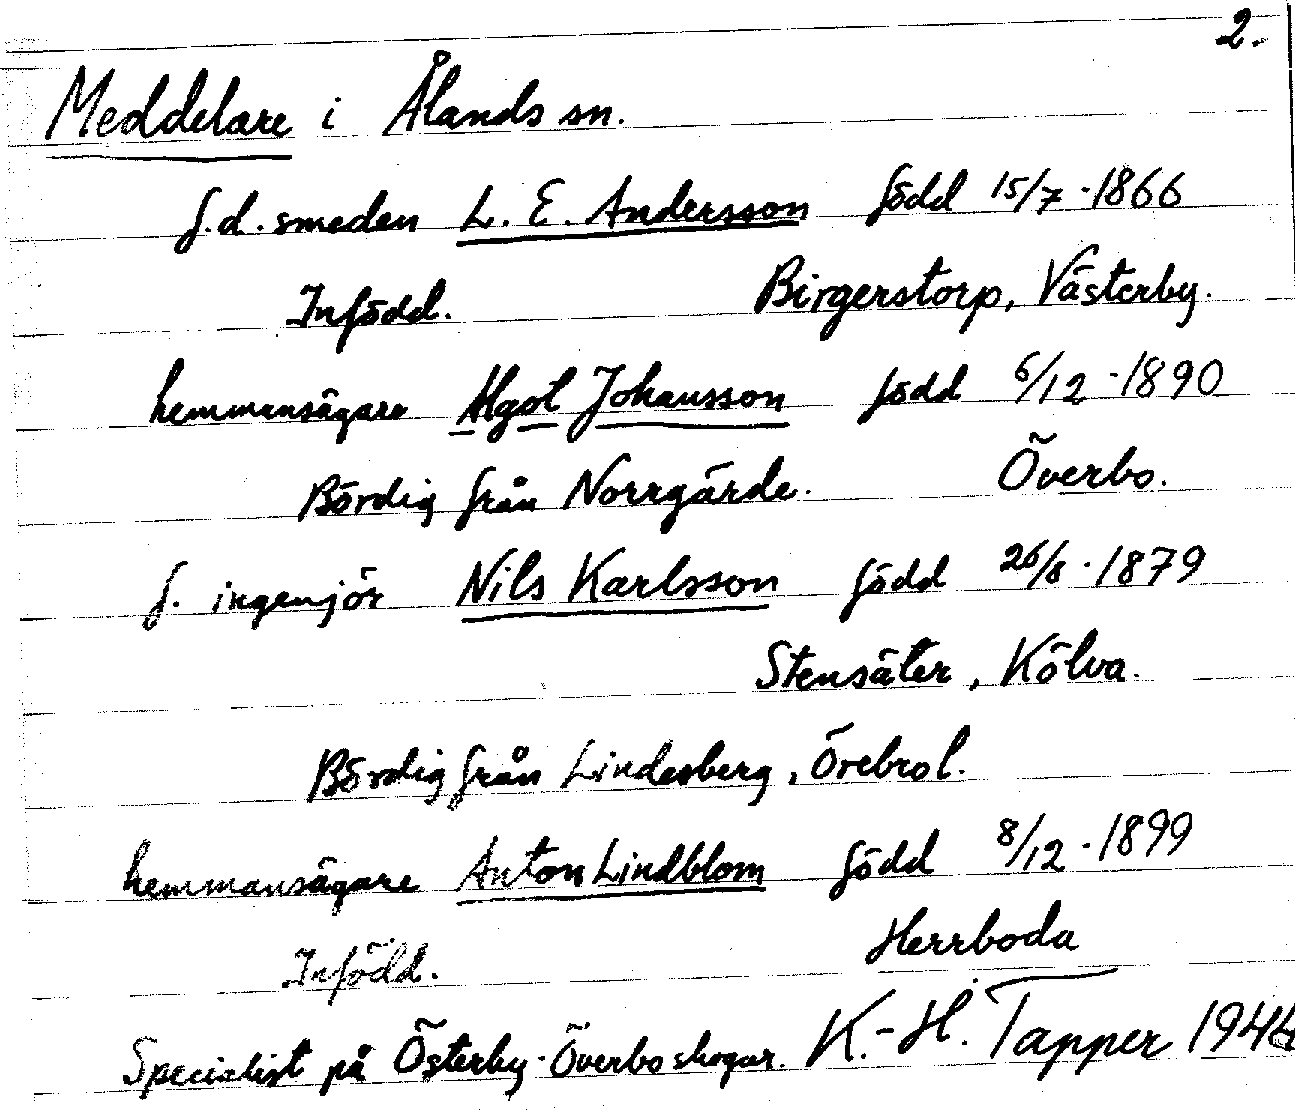 2.
Meddelare i Ålands sn.
f.d. smeden L. E. Andersson född 15/7 -1866
Infödd. Birgerstorp, Västerby.
hemmansägare Algot Johansson född 6/12 -1890
Bördig från Norrgärde. Överbo.
f. ingenjör Nils Karlsson född 26/8 -1879
Stensäter, Kölva.
Bördig från Lindesberg, Örebro l.
hemmansägare Anton Lindblom född 8/12 -1899
Infödd. Herrboda
Specialist på Österby-Överbo skogar. K.-H. Tapper 1944